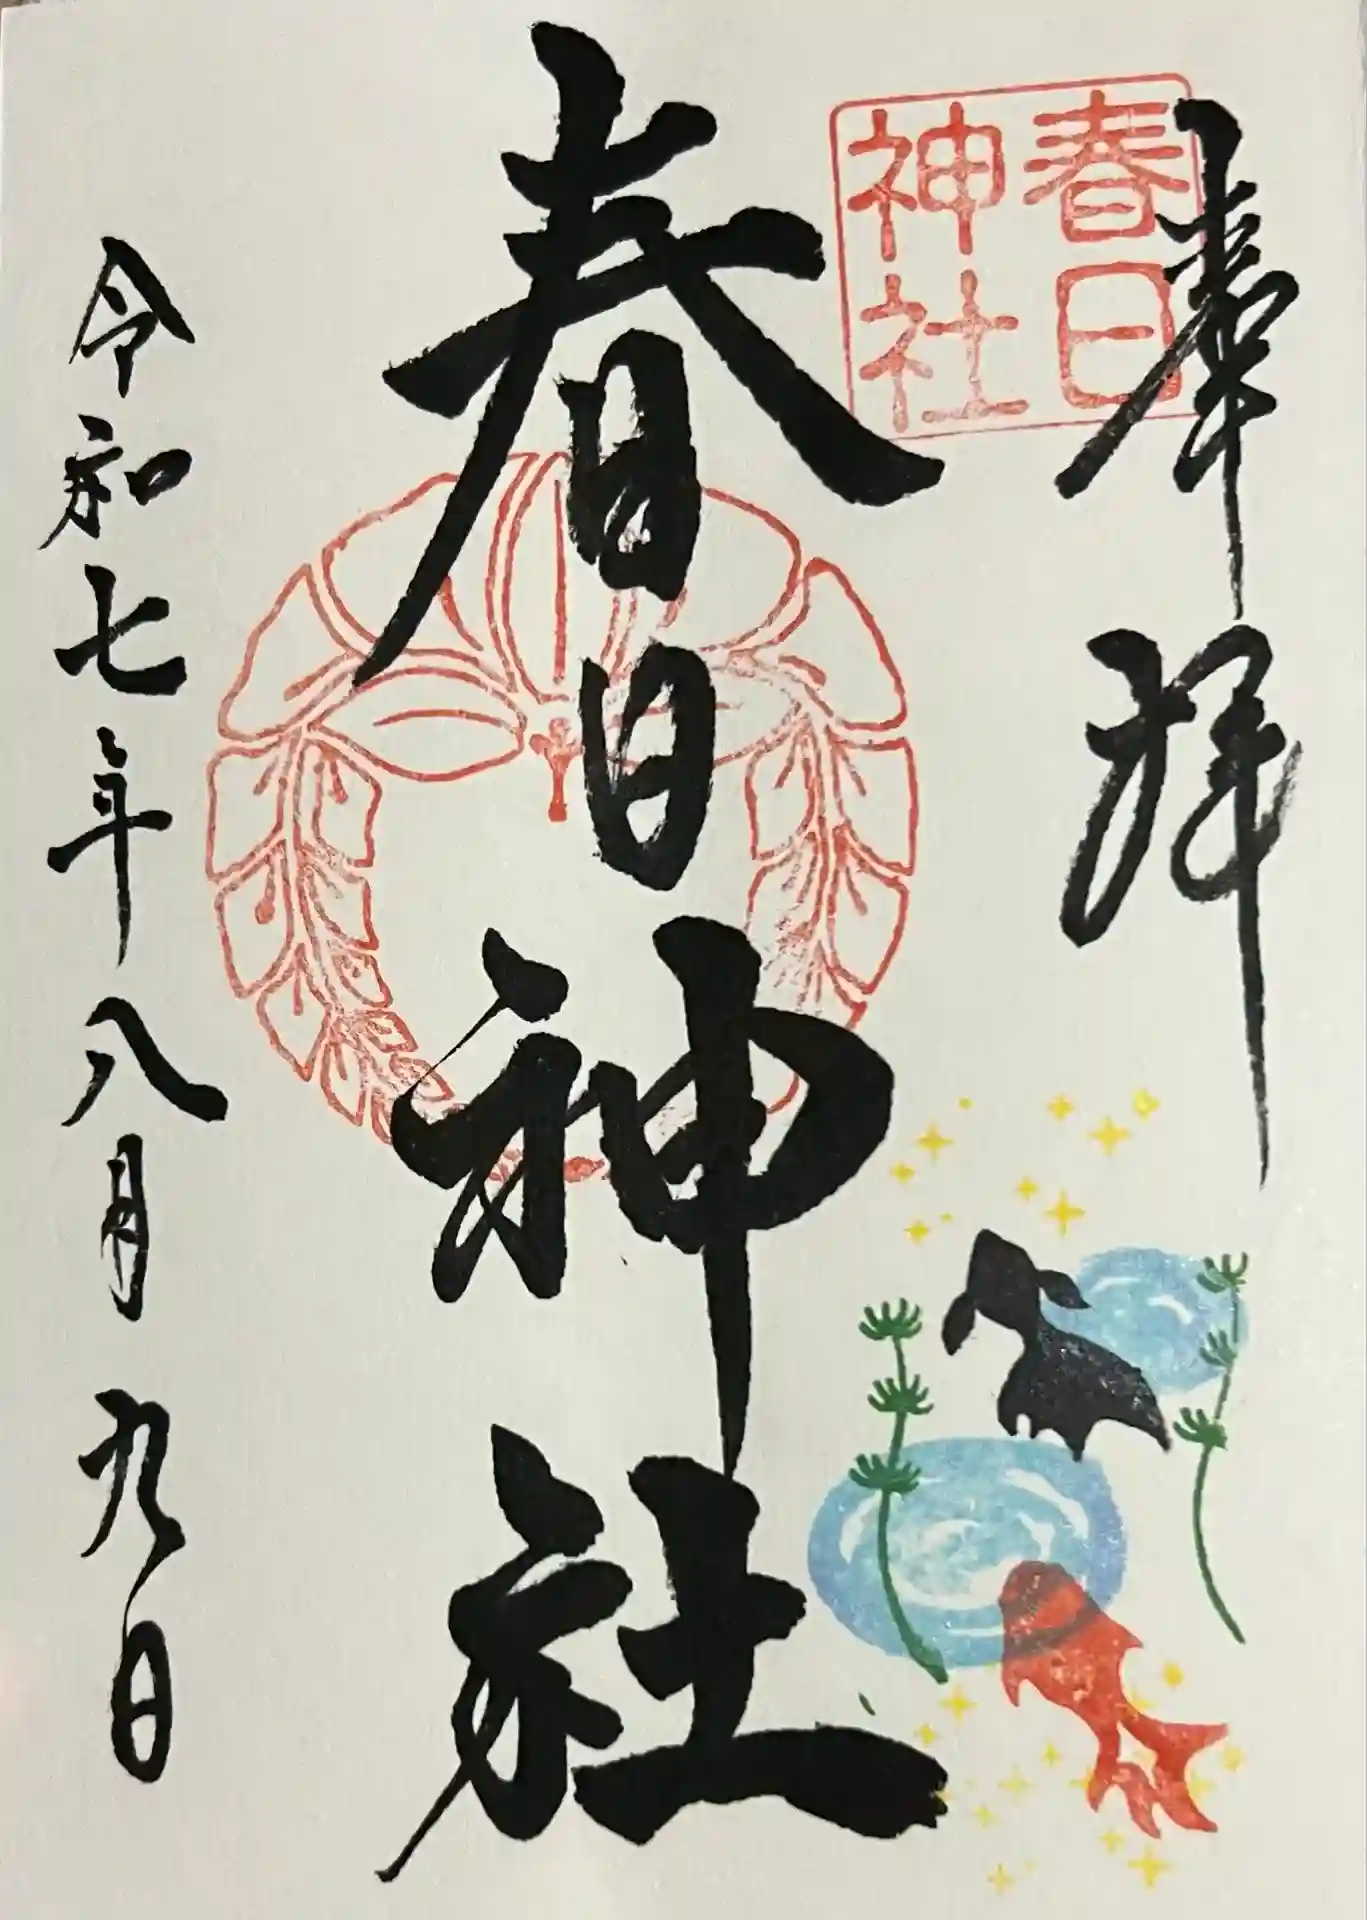 奉拝
春日
神社
春日神社
令和七年八月九日